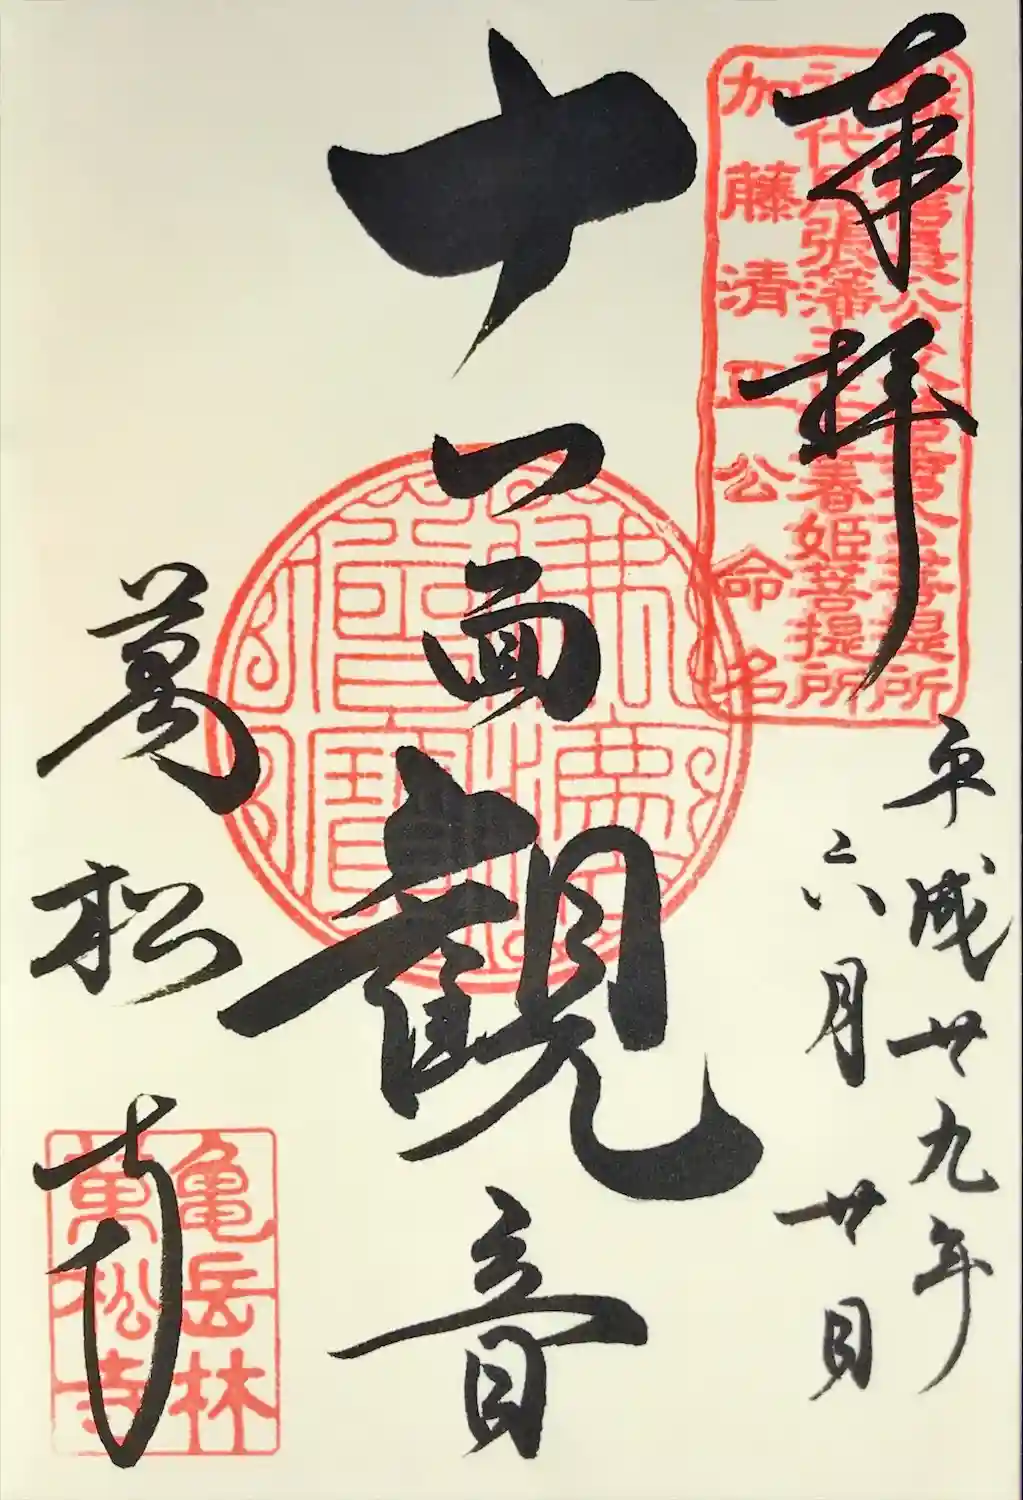 奉拝
平成廿九年
六月廿日
織田信長公父信秀公菩提所
初代尾張藩主正室春姫菩提所
加藤清正公命名
十一面觀音
萬松寺
亀岳林
萬松寺